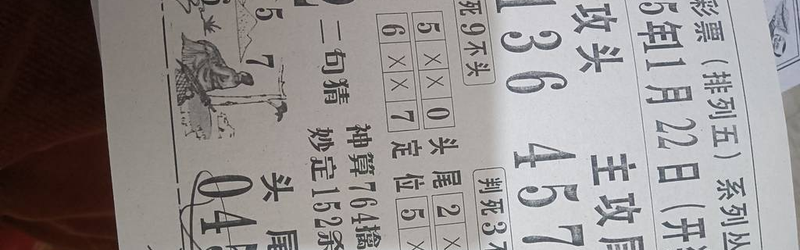 彩票（排列五）系列丛
5年1月22日（开
攻头 主攻尾
136 457
死9不头 判死3不
5××0 头尾 2×
6××7 定位 5×
二句猜 神算764擒
妙定152杀
5 7
头尾
045